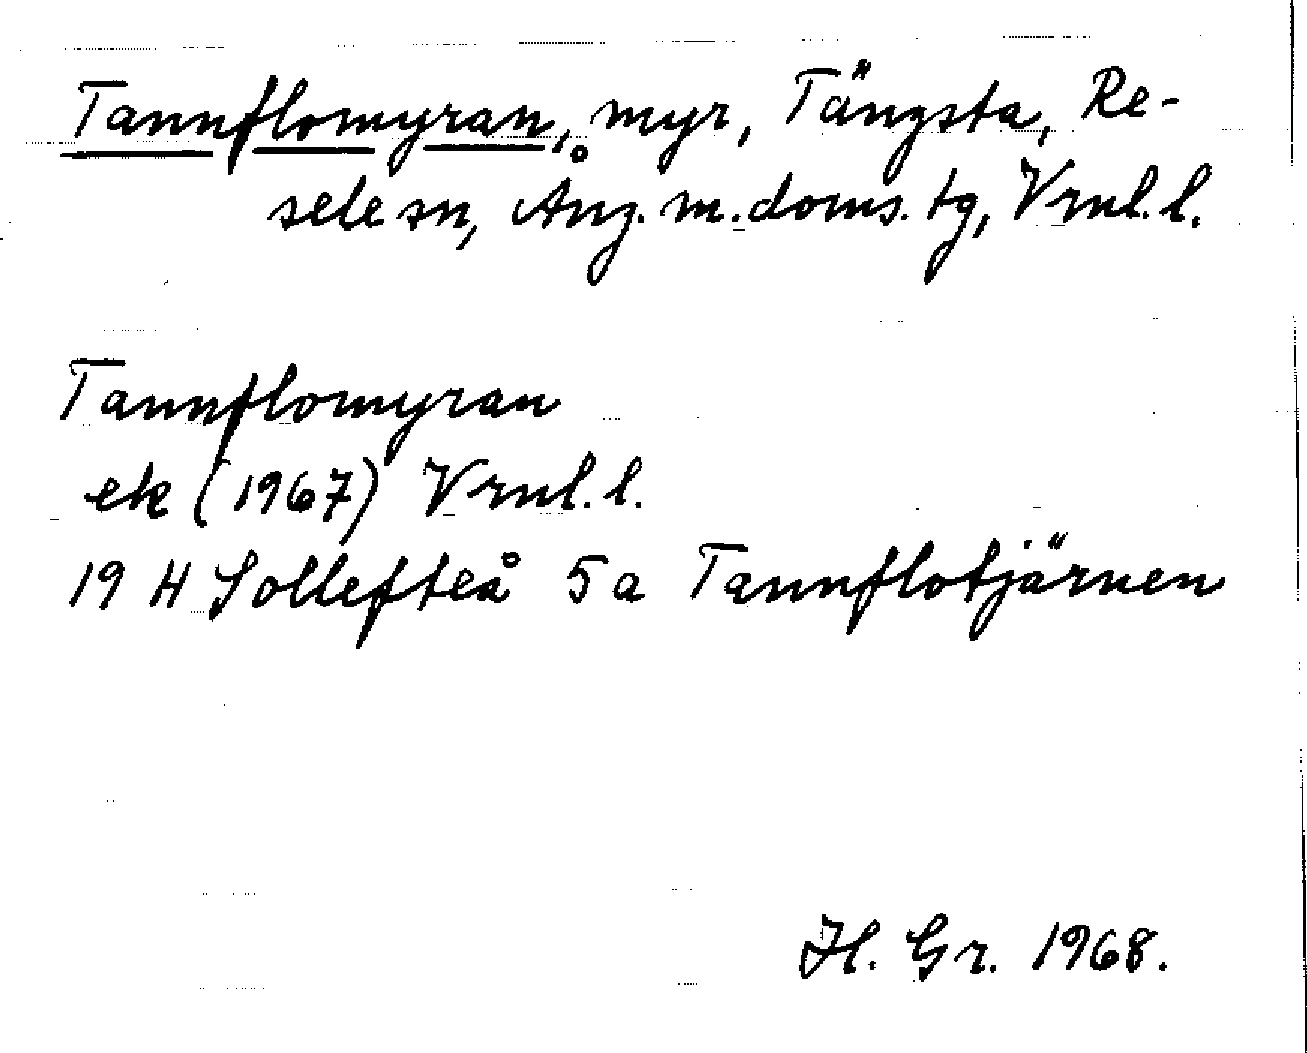 Tannflomyran, myr, Tängsta, Re-
sele sn, Ång. m. doms. tg, Vrnl. l.
Tannflomyran
ek (1967) Vrnl. l.
19 H Sollefteå 5a Tannflotjärnen
H. Gr. 1968.